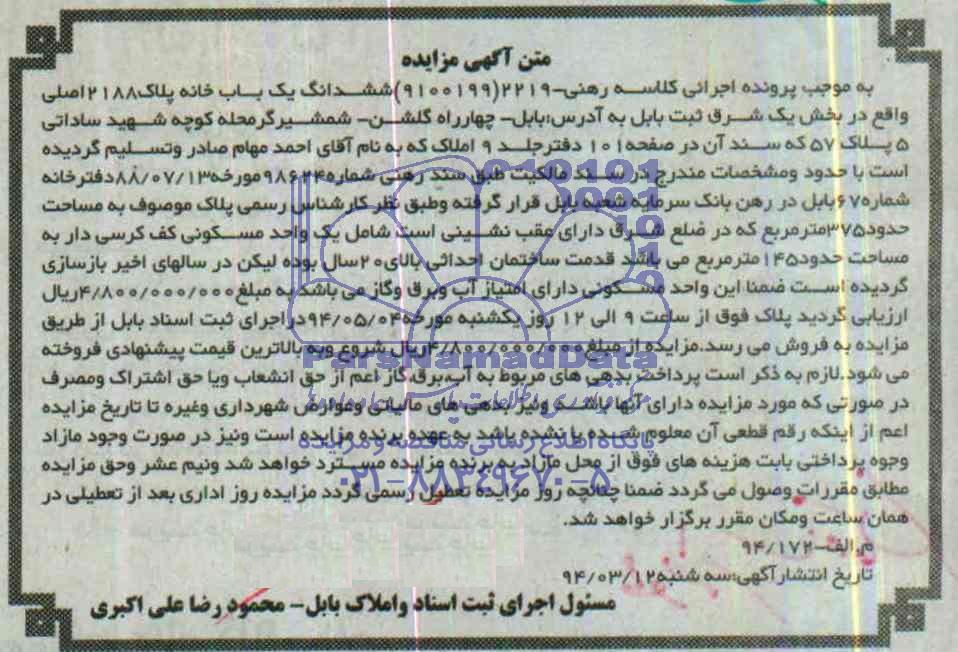 متن آگهی مزایده
به موجب پرونده اجرائی کلاسه رهنی-۲۲۱۹(۹۱۰۰۱۹۹)ششدانگ یک باب خانه پلاک۲۱۸۸اصلی
واقع در بخش یک شرق ثبت بابل به آدرس:بابل- چهارراه گلشن- شمشیرگرمحله کوچه شهید ساداتی
۵ پلاک ۵۷ که سند آن در صفحه۱۰۱ دفترجلد ۹ املاک که به نام آقای احمد مهام صادر وتسلیم گردیده
است با حدود ومشخصات مندرج در سند مالکیت طبق سند رهنی شماره۹۸۶۲۴مورخه۸۸/۰۷/۱۳دفترخانه
شماره۶۷بابل در رهن بانک سرمایه شعبه بابل قرار گرفته وطبق نظر کارشناس رسمی پلاک موصوف به مساحت
حدود۳۷۵مترمربع که در ضلع شرق دارای عقب نشینی است شامل یک واحد مسکونی کف کرسی دار به
مساحت حدود۱۴۵مترمربع می باشد قدمت ساختمان احداثی بالای۲۰سال بوده لیکن در سالهای اخیر بازسازی
گردیده است ضمنا این واحد مسکونی دارای امتیاز آب وبرق وگاز می باشد به مبلغ۴/۸۰۰/۰۰۰/۰۰۰ریال
ارزیابی گردید پلاک فوق از ساعت ۹ الی ۱۲ روز یکشنبه مورخه۹۴/۰۵/۰۴دراجرای ثبت اسناد بابل از طریق
مزایده به فروش می رسد.مزایده از مبلغ۴/۸۰۰/۰۰۰/۰۰۰ریال شروع وبه بالاترین قیمت پیشنهادی فروخته
می شود.لازم به ذکر است پرداخت بدهی های مربوط به آب،برق،گاز اعم از حق انشعاب ویا حق اشتراک ومصرف
در صورتی که مورد مزایده دارای آنها باشد ونیز بدهی های مالیاتی وعوارض شهرداری وغیره تا تاریخ مزایده
اعم از اینکه رقم قطعی آن معلوم شده یا نشده باشد به عهده برنده مزایده است ونیز در صورت وجود مازاد
وجوه پرداختی بابت هزینه های فوق از محل مازاد به برنده مزایده مسترد خواهد شد ونیم عشر وحق مزایده
مطابق مقررات وصول می گردد ضمنا چنانچه روز مزایده تعطیل رسمی گردد مزایده روز اداری بعد از تعطیلی در
همان ساعت ومکان مقرر برگزار خواهد شد.
م.الف-۹۴/۱۷۲
تاریخ انتشارآگهی:سه شنبه۹۴/۰۳/۱۲
مسئول اجرای ثبت اسناد واملاک بابل- محمود رضا علی اکبری
ParsNamadData
پایگاه اطلاع رسانی مناقصه و مزایده
۰۲۱-۸۸۳۴۹۶۷۰-۵